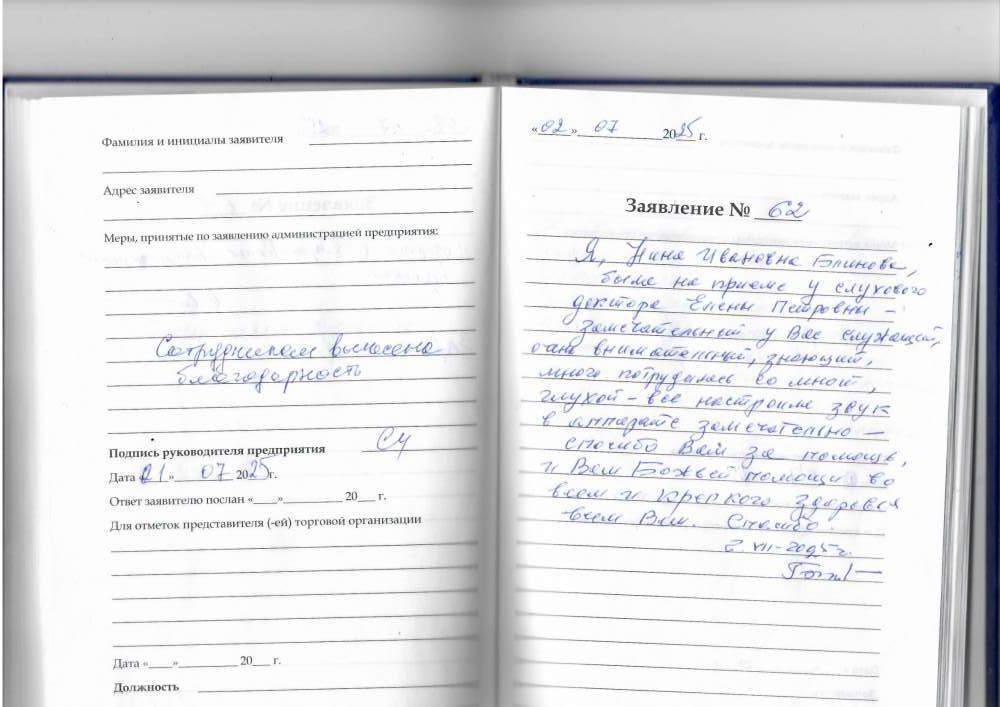 Фамилия и инициалы заявителя
Адрес заявителя
Меры, принятые по заявлению администрацией предприятия:
Сотрудникам вынесена
благодарность
Подпись руководителя предприятия
Дата «01» 07 2025 г.
Ответ заявителю послан «___»__________ 20___ г.
Для отметок представителя (-ей) торговой организации
Дата «___»__________ 20___ г.
Должность
«02» 07 2025 г.
Заявление № 62
Я, Нина Ивановна Блинова,
была на приеме у слухового
доктора Елены Петровны –
замечательный у Вас служащий,
очень внимательный, знающий,
много потрудилась со мной,
глухой – все настроила звук
в аппарате замечательно –
спасибо Вам за помощь,
и Вам Божьей помощи во
всем и крепкого здоровья
всем Вам. Спасибо.
2 VII-2025г.